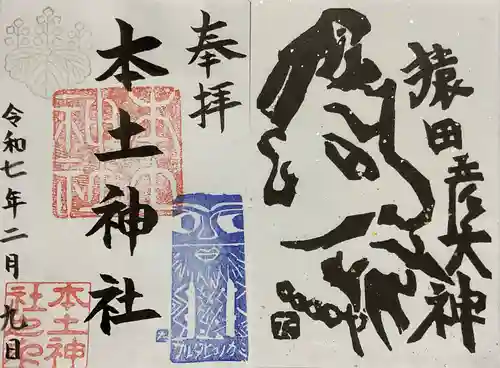 奉拝
本土神社
令和七年二月九日
本土神社
本土神
サルタヒコノカミ
猿田彦大神